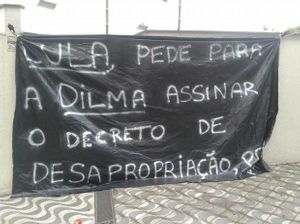 LULA, PEDE PARA
A DILMA ASSINAR
O DECRETO DE
DESAPROPRIAÇÃO,